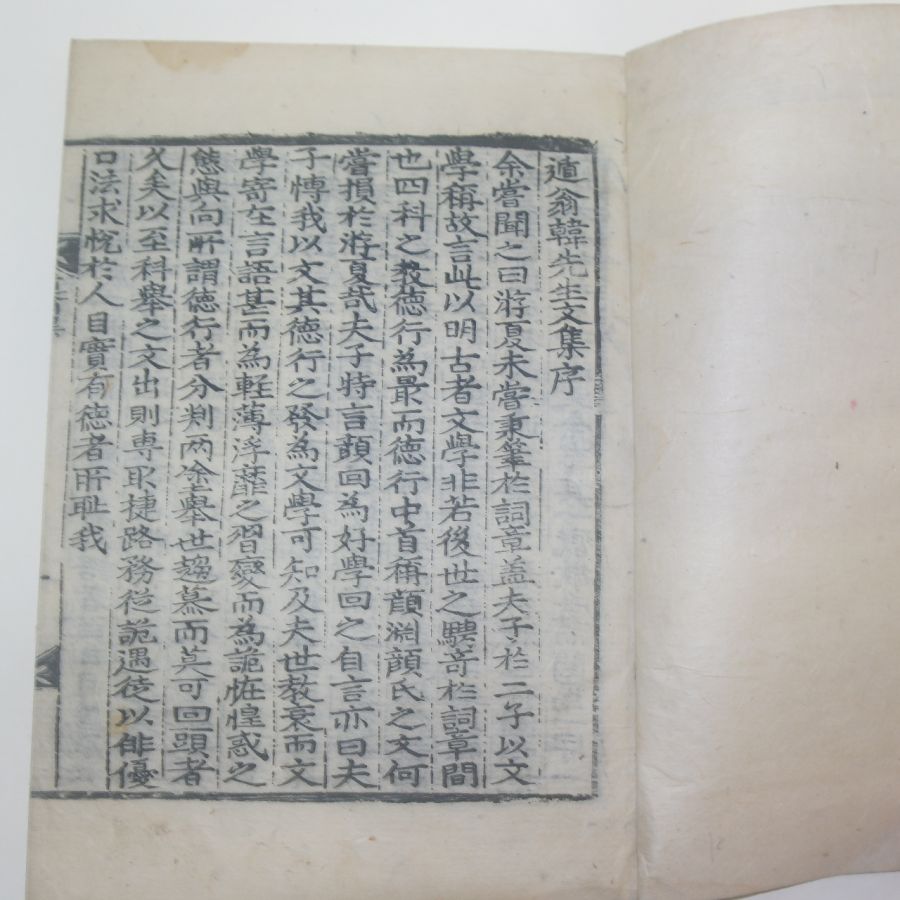 遁翁韓先生文集序
余嘗聞之曰游夏未嘗秉筆於詞章盖夫子於二子以文
學稱故言此以明古者文學非若後世之騁奇於詞章間
也四科之教德行為最而德行中首稱顔淵顔氏之文何
嘗損於游夏哉夫子特言顔回為好學回之自言亦曰夫
子愽我以文其德行之發為文學可知及夫世教衰而文
學寄在言語甚而為軽薄浮靡之習變而為詭恠惶惑之
態與向所謂德行者分判兩塗舉世趨慕而莫可回頭者
久矣以至科舉之文出則専取捷路務従詭遇徒以俳優
口法求悅於人目實有德者所耻我